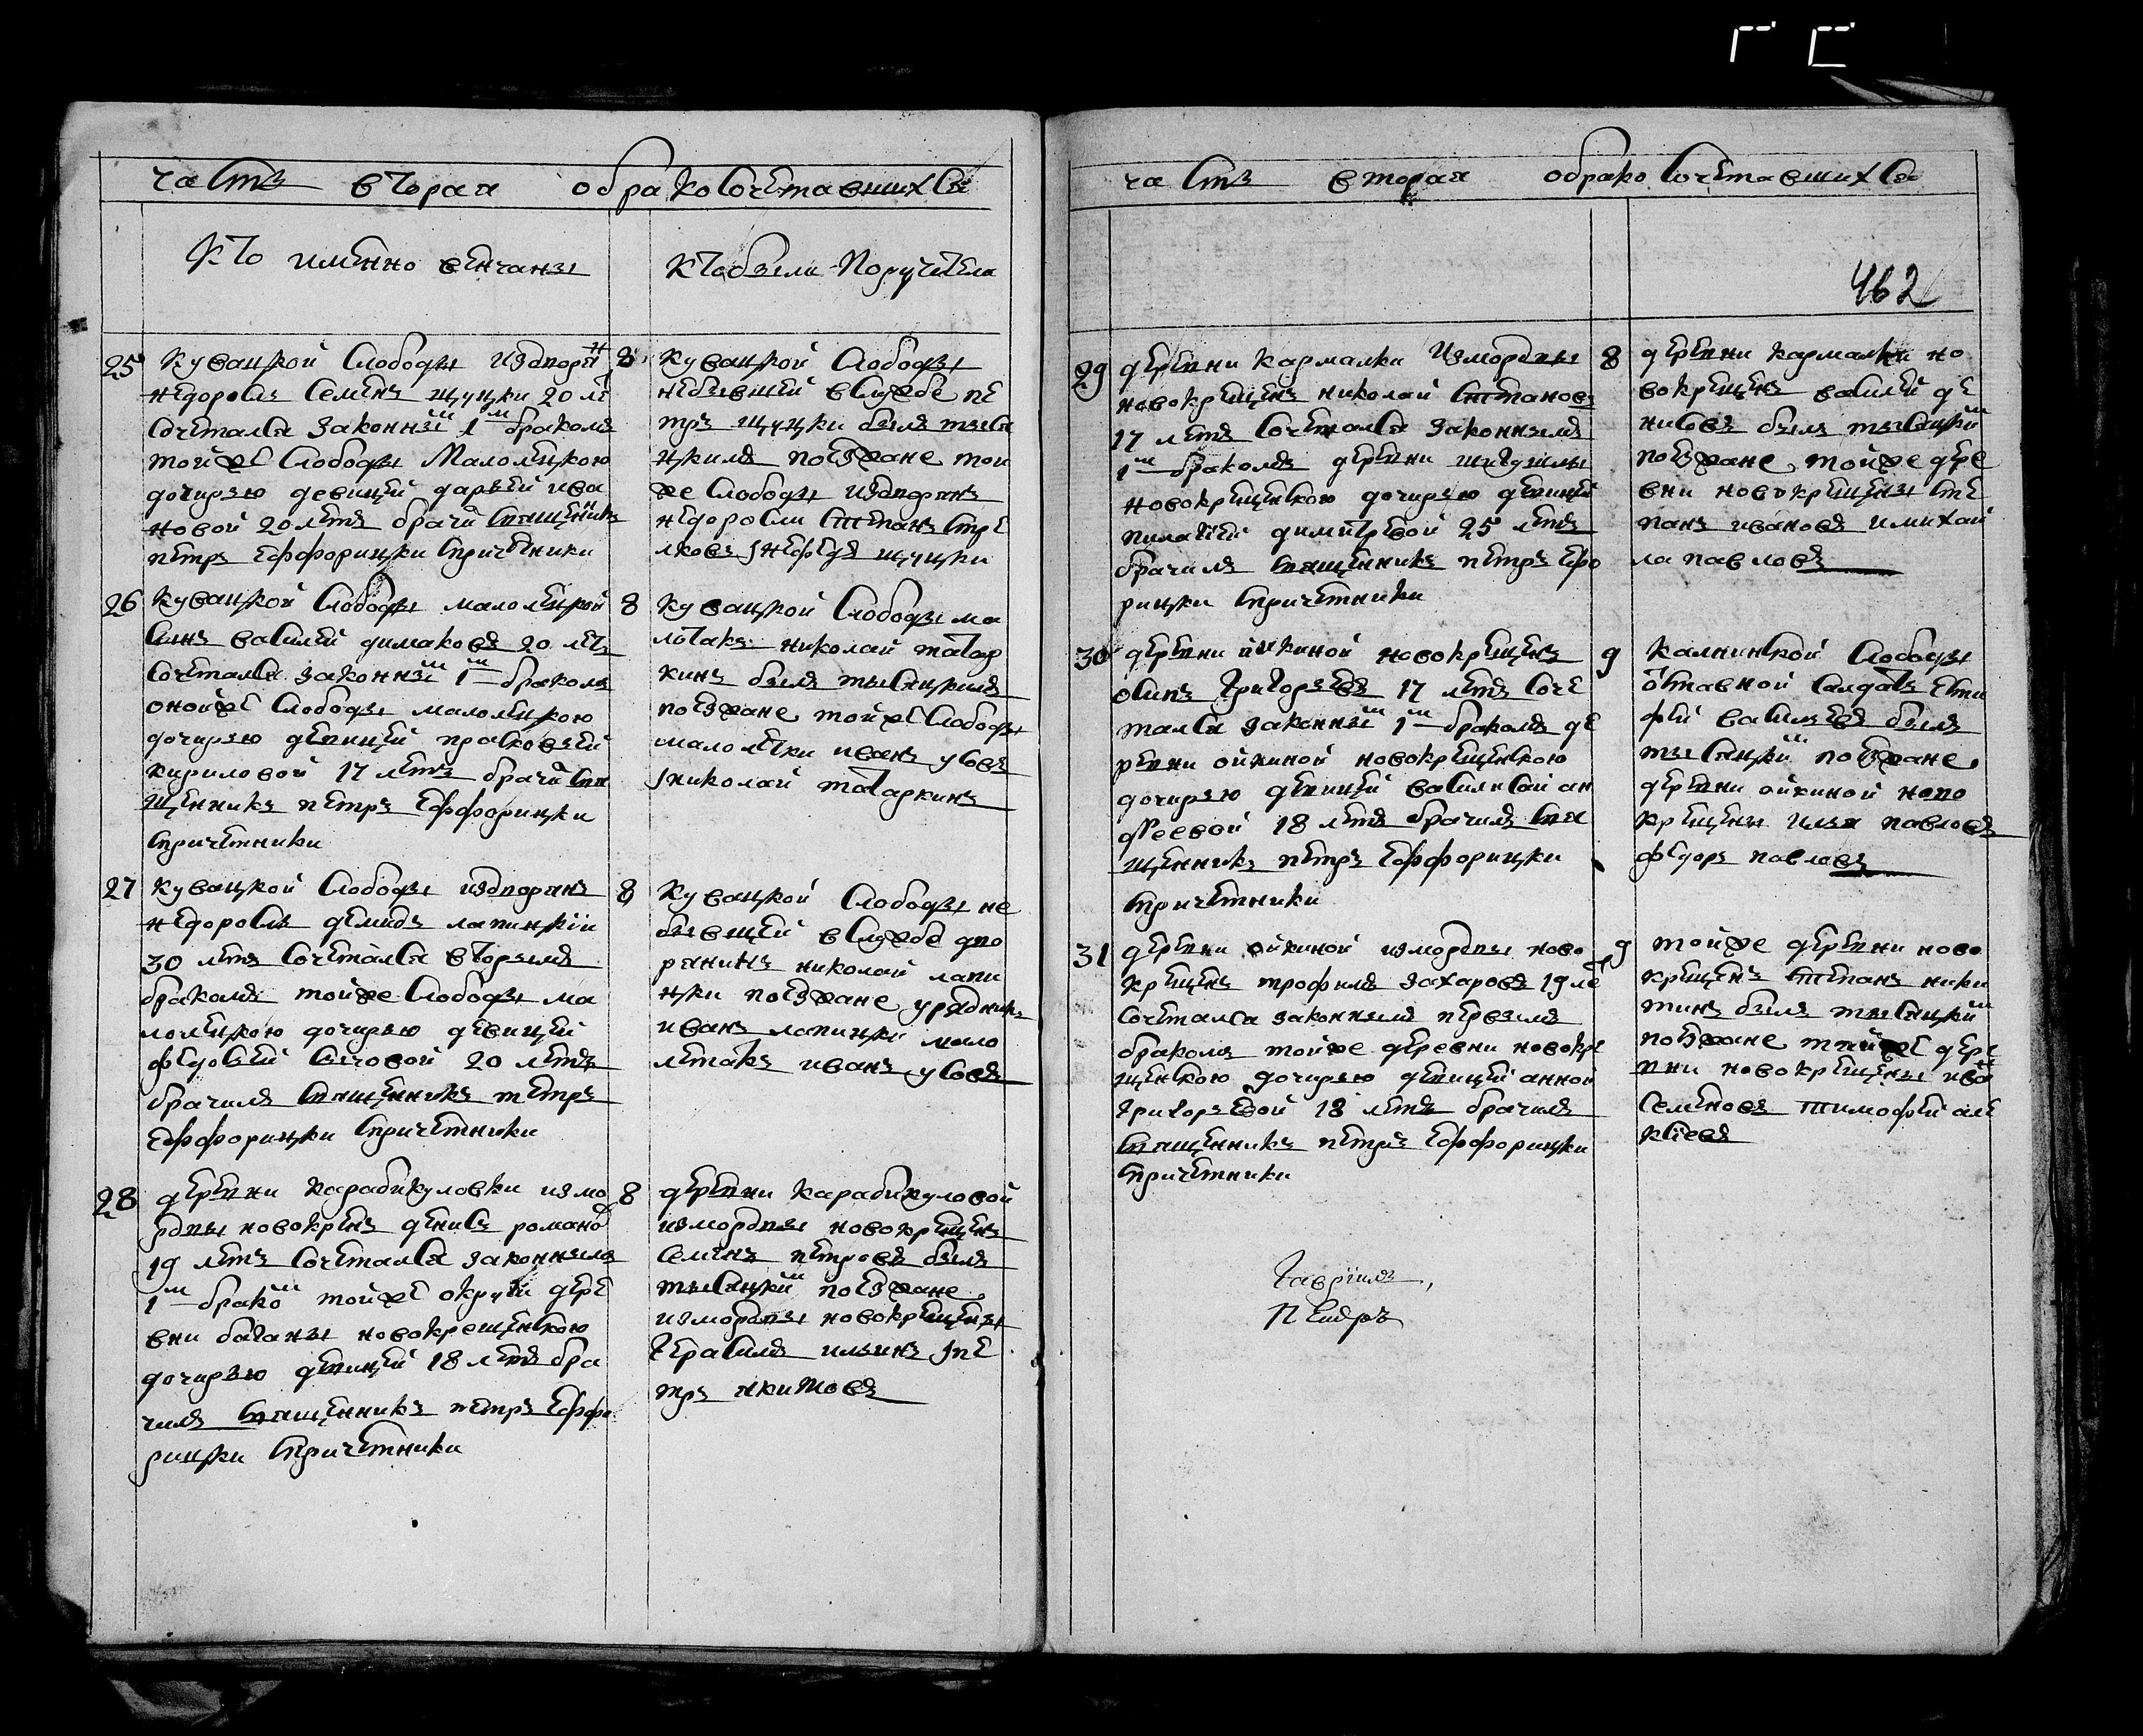 часть вторая о бракосочетавшихся
Кто имянно венчаны
Кто были Поручители
25
Кувацкой Слободы из дворян
недоросль Семенъ щуцки 20 ле
Сочетался законны 1 бракомъ
тойже Слободы Малолецкою
дочирью девицей дарьей ива
новой 20 летъ брачи Священикъ
петръ Еффорицки Спричетники
8
Кувацкой Слободы
небывшей вслужбе пе
тръ щуцки былъ тыся
цкимъ поезжане той
же Слободы издворянъ
недоросли Степанъ Стре
лковъ нефедъ щуцки
26
Кувацкой Слободы малолецкой
Сынъ василей димаковъ 20 летъ
Сочетался законны 1 бракомъ
онойже Слободы малолецкою
дочирью девицей прасковьей
кириловой 17 летъ брачи Свя
щенникъ петръ Еффорицки
Спричетники
8
Кувацкой Слободы ма
лотакъ николай татар
кинъ былъ тысяцкимъ
поезжане тойже Слободы
малолетки иванъ усовъ
николай татаркинъ
27
Кувацкой Слободы издворянъ
недоросль демидъ лапицкiй
30 летъ Сочетался вторымъ
бракомъ тойже Слободы ма
лолецкою дочирью девицей
федосьей Сычовой 20 летъ
брачилъ Священникъ петръ
Еффорицки Спричетники
8
Кувацкой Слободы не
бывщей вслужбе дво
ринъ николай лапи
цки поезжане урядникъ
иванъ лапицки мало
летакъ иванъ усовъ
28
деревни карабикуловки измо
рдвы новокренъ денисъ романо
19 летъ Сочетался законнымъ
1 брако тойже округи дере
вни баганы новокрещенскою
дочирью девицей 18 летъ бра
чилъ Священникъ петръ Еффо
рицки Спричетники
8
деревни карабикуловой
измордвы новокрещенъ
Семенъ петровъ былъ
тысяцки поезжане
измордвы новокрещены
Герасимъ ильинъ пе
тръ якимовъ
часть вторая о бракосочетавшихся
462
29
деревни кармалки Измордвы
новокрещенъ николай Степановъ
17 летъ Сочетался законнымъ
1 бракомъ деревни шигушлы
новокрещенскою дочирью девицей
пилагеей димитревой 25 летъ
брачилъ Священникъ петръ Ефо
рицки Спричетники
8
деревни кармалки но
вокрещенъ василей де
нисовъ былъ тысяцки
поезжане тойже дере
вни новокрещены Сте
панъ ивановъ имихай
ла павловъ
30
деревни ойкиной новокрещенъ
осипъ Григорьевъ 17 летъ Соче
тался законны 1 бракомъ де
ревни ойкиной новокрещенскою
дочирью девицей василисой ан
дреевой 18 летъ брачилъ Свя
щенникъ петръ Еффорицки
Спричетники
9
Калнинской Слободы
отставной Салдатъ Сти
фей васильевъ былъ
тысяцки поезжане
деревни ойкиной ново
крещены Илья павловъ
федоръ павловъ
31
деревни ойкиной измордвы ново
крещенъ трофимъ захаровъ 19 ле
Сочетался законнымъ первымъ
бракомъ тойже деревни новокре
щенскою дочирью девицей анной
Григорьевой 18 летъ брачилъ
Священникъ петръ Еффорицки
Спричетники
9
тойже деревни ново
крещенъ Степанъ ники
тинъ былъ тысяцкий
поезжане тойже дере
вни новокрещены ива
Семеновъ тимофей але
ксеевъ
Гаврiилъ